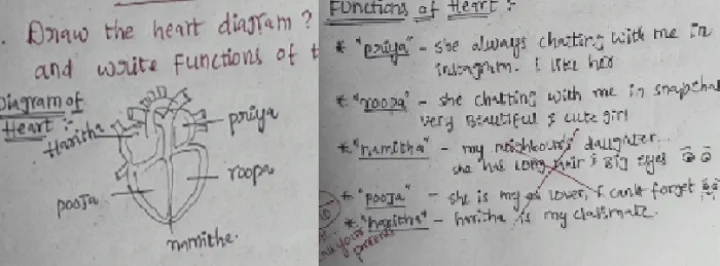 . Draw the heart diagram?
and write Functions of t
Diagram of
Heart :-
Haritha
priya
roopa
pooja
namithe.
Functions of Heart :-
* "priya" - she always chatting with me in
instagram. I like her
* "roopa" - she chatting with me in snapchat
very Beautiful & cute girl
* "namitha" - my neighbour's daughter...
she has long hair & Big eyes
* "pooja" - she is my ex lover, I can't forget
* "haritha" - haritha is my classmate.
parents